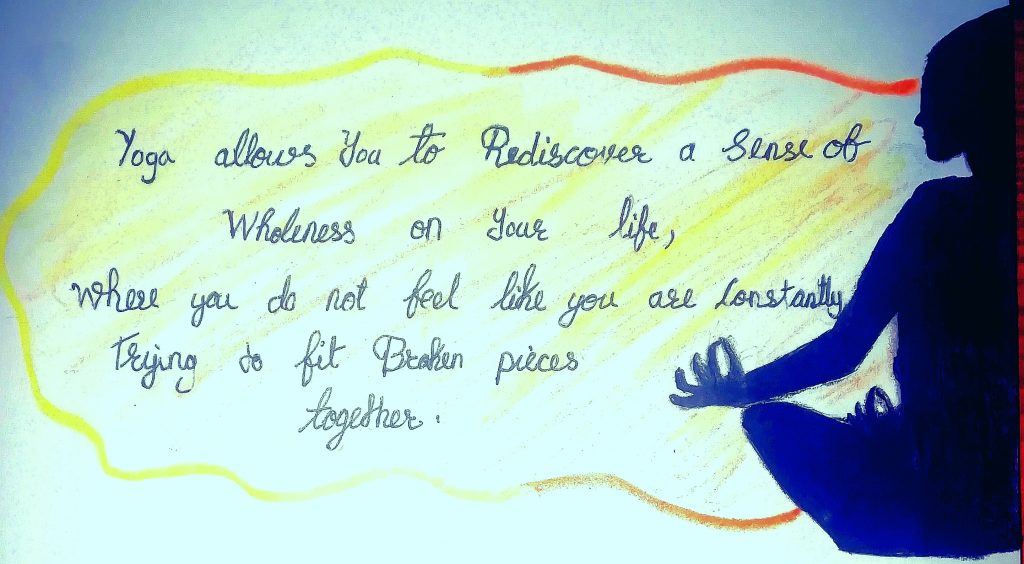 Yoga allows You to Rediscover a Sense of
Wholeness on Your life,
Where you do not feel like you are Constantly
Trying to fit Broken pieces
together.